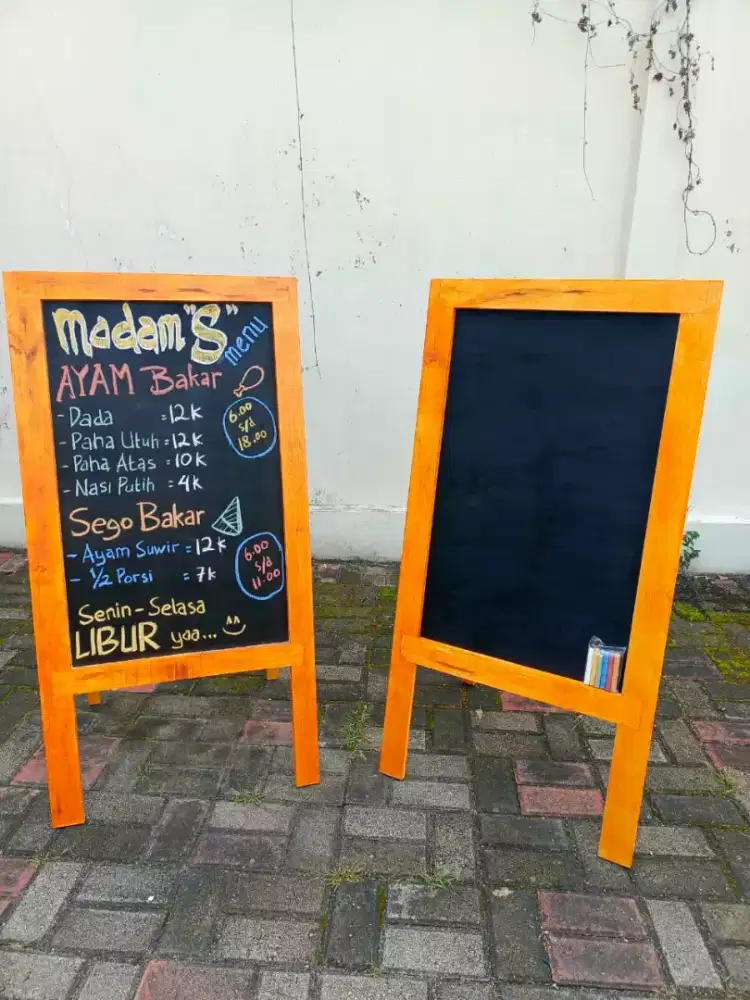 Madam "S"
menu
AYAM Bakar
- Dada = 12k
- Paha Utuh = 12k
- Paha Atas = 10k
- Nasi Putih = 4k
6.00
s/d
18.00
Sego Bakar
- Ayam Suwir = 12k
- 1/2 Porsi = 7k
6.00
s/d
11.00
Senin - Selasa
LIBUR yaa...